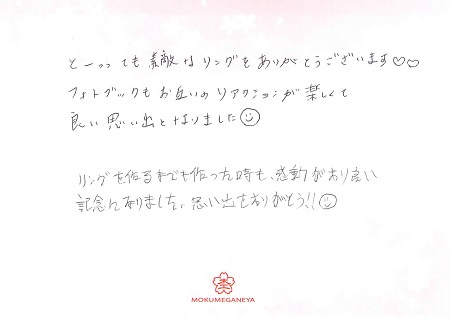 とーっっても素敵なリングをありがとうございます♡♡
フォトブックもお互いのリアクションが楽しくて
良い思い出となりました☺
リングを作るまでも作った時も、感動があり良い
記念になりました。思い出をありがとう!!☺
MOKUMEGANEYA